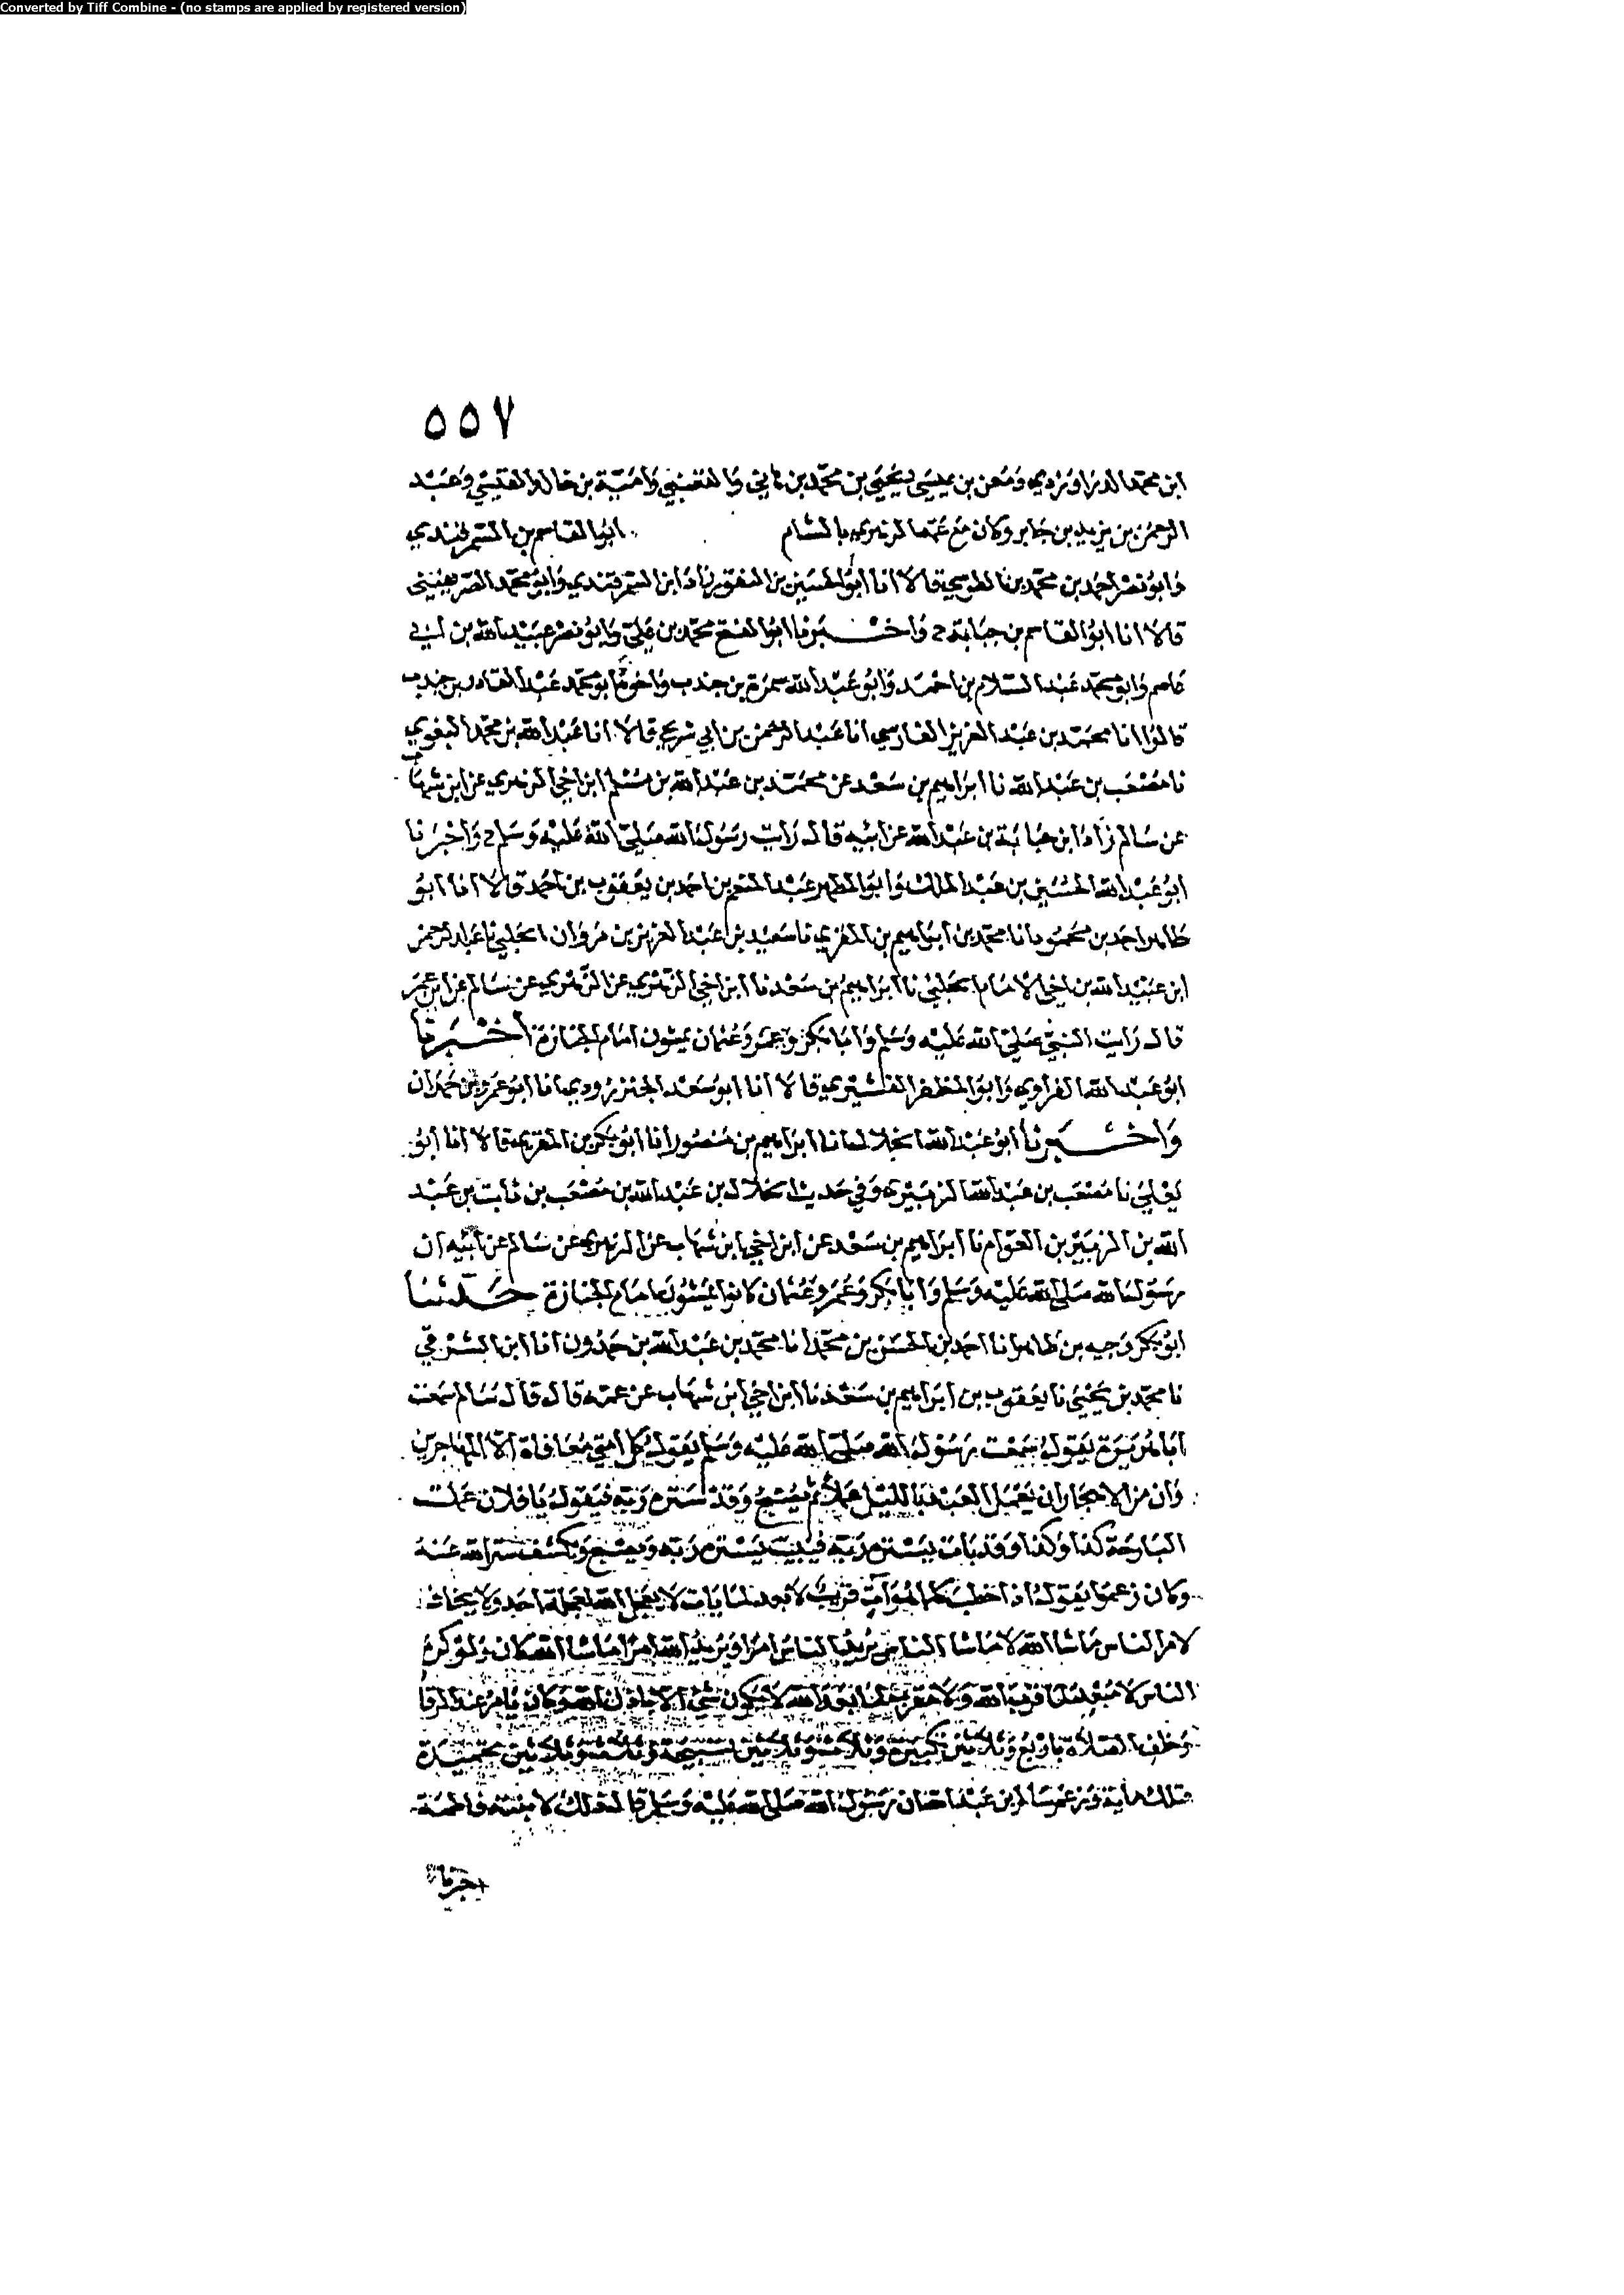 Converted by Tiff Combine - (no stamps are applied by registered version)
٥٥٧
ابن محمد الدراوردي ومعن بن عيسى ويحيى بن محمد بن هاني والقعنبي وامية بن خالد القيسي وعبد
الرحمن بن يزيد بن جابر وكان مع عمه الزهري بالشام ابو القاسم بن السمرقندي
وابو نصر احمد بن محمد بن الطوسي قالا انا ابو الحسين بن النقور زاد ابن السمرقندي وابو محمد الصريفيني
قالا انا ابو القاسم بن حبابة ح واخبرنا ابو الفتح محمد بن علي وابو نصر عبيد الله بن ابي
عاصم وابو محمد عبد السلام بن احمد وابو عبد الله سمرة بن جندب واخوه ابو محمد عبد القادر بن جندب
قالوا انا محمد بن عبد العزيز الفارسي انا عبد الرحمن بن ابي شريح قالا انا عبد الله بن محمد البغوي
نا مصعب بن عبد الله نا ابراهيم بن سعد عن محمد بن عبد الله بن مسلم ابن اخي الزهري عن ابن شهاب
عن سالم زاد ابن حبابة بن عبد الله عن ابيه قال رايت رسول الله صلى الله عليه وسلم ح واخبرنا
ابو عبد الله الحسين بن عبد الملك وابو المطهر عبد المنعم بن احمد بن يعقوب بن احمد قالا انا ابو
طاهر احمد بن محمود انا محمد بن ابراهيم بن المقري نا سعيد بن عبد العزيز بن مروان الحلبي نا عبد الرحمن
ابن عبيد الله بن اخي الامام الحلبي نا ابراهيم بن سعد نا ابن اخي الزهري عن الزهري عن سالم عن ابن عمر
قال رايت النبي صلى الله عليه وسلم وابا بكر وعمر وعثمان يمشون امام الجنازة اخبرنا
ابو عبد الله الفراوي وابو المظفر القشيري قالا انا ابو سعد الجنزرودي انا ابو عمرو بن حمدان
واخبرنا ابو عبد الله الخلال انا ابراهيم بن منصور انا ابو بكر بن المقري قالا انا ابو
يعلى نا مصعب بن عبد الله الزبيري وفي حديث الخلال بن عبد الله بن مصعب بن ثابت بن عبد
الله بن الزبير بن العوام نا ابراهيم بن سعد عن ابن اخي ابن شهاب عن الزهري عن سالم عن ابيه ان
رسول الله صلى الله عليه وسلم وابا بكر وعمر وعثمان كانوا يمشون امام الجنازة حدثنا
ابو بكر وجيه بن طاهر انا احمد بن الحسن بن محمد انا محمد بن عبد الله بن حمدون انا ابن الشرقي
نا محمد بن يحيى نا يعقوب بن ابراهيم بن سعد نا ابن اخي ابن شهاب عن عمه قال قال سالم سمعت
ابا هريرة يقول سمعت رسول الله صلى الله عليه وسلم يقول كل امتي معافاة الا المهاجرين
وان من الاجهار ان يعمل العبد بالليل عملا ثم يصبح وقد ستره ربه فيقول يا فلان عملت
البارحة كذا وكذا وقد بات يستره ربه فيبيت يستره ربه ويصبح ويكشف ستر الله عنه
وكان زعموا يقول اذا خطب كلما هو آت قريب لا بعد لما يات لا يعجل الله لعجلة احد ولا
لامر الناس ما شا الله لا ما شا الناس يريد الناس امرا ويريد الله امرا ما شا الله كان ولو كره
الناس لا مبعد لما قرب الله ولا مقرب لما بعد الله لا يكون شي الا باذن الله وكان يامر عند الرقا
وخلف الصلاة باربع وثلاثين تكبيرة وثلاث وثلاثين تسبيحة وثلاث وثلاثين تحميدة
فتلك ماية وزعم سالم بن عبد الله ان رسول الله صلى الله عليه وسلم قال ذلك لابنته فاطمة